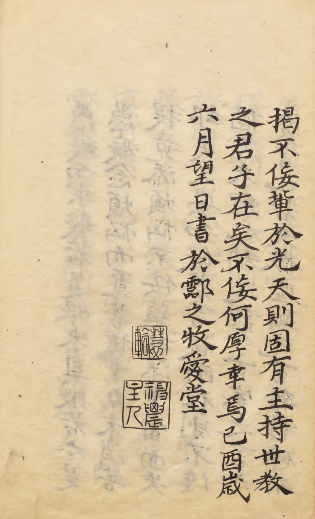 揭不佞輩於光天則固有主持世教
之君子在矣不佞何厚幸焉己酉歲
六月望日書於酃之牧愛堂